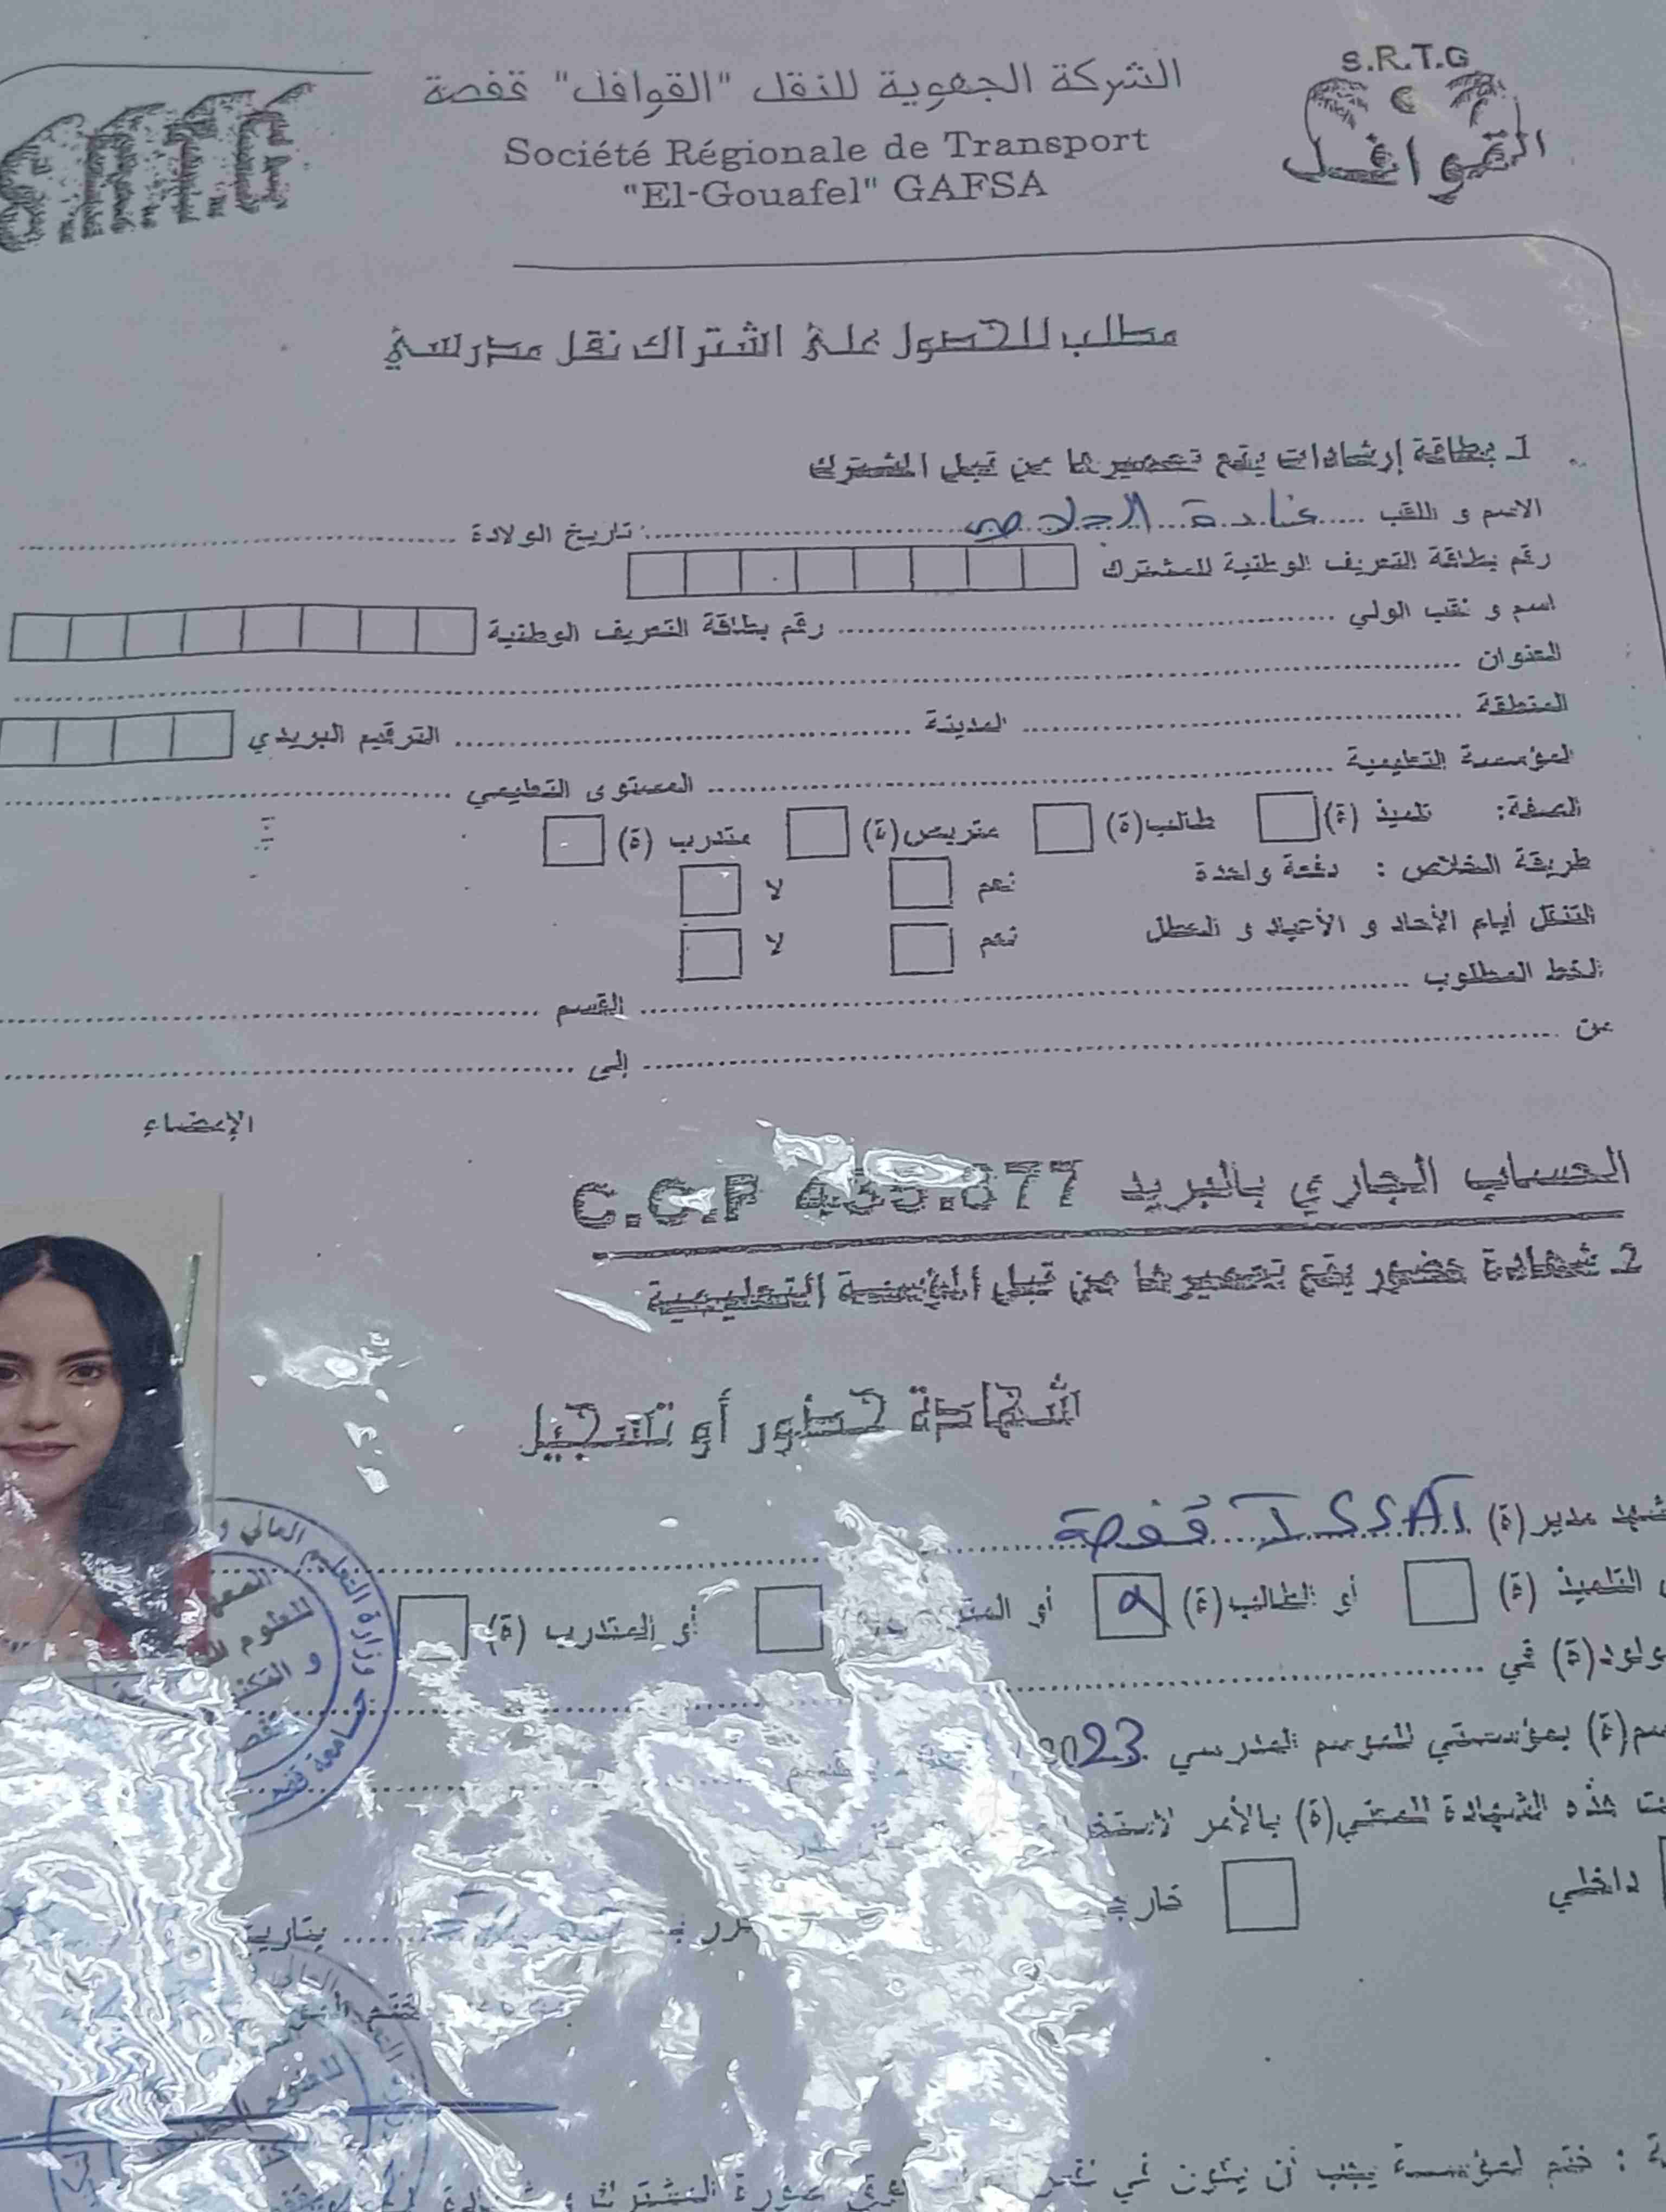 S.R.T.G
القوافل
SRTG
الشركة الجهوية للنقل "القوافل" قفصة
Société Régionale de Transport
"El-Gouafel" GAFSA
مطلب للحصول على اشتراك نقل مدرسي
1. بطاقة إرشادات يقع تعميرها من قبل المشترك
الاسم و اللقب غادة تاريخ الولادة
رقم بطاقة التعريف الوطنية للمشترك
اسم و لقب الولي رقم بطاقة التعريف الوطنية
العنوان
المنطقة المدينة الترقيم البريدي
المؤسسة التعليمية المستوى التعليمي
الصفة: تلميذ (ة) طالب(ة) متربص(ة) متدرب (ة)
طريقة الخلاص : دفعة واحدة نعم لا
التنقل أيام الأحاد و الأعياد و العطل نعم لا
الخط المطلوب القسم
من إلى
الإمضاء
الحساب الجاري بالبريد C.C.P
2. شهادة حضور يقع تعميرها من قبل المؤسسة التعليمية
شهادة حضور أو تسجيل
مدير (ة) ISSAT قفصة
التلميذ (ة) أو الطالب(ة) أو أو المتدرب (ة)
(ة) في
(ة) بمؤسستي للموسم المدرسي 2023
هذه الشهادة للمعني(ة) بالأمر
داخلي
وزارة التعليم العالي و
العلوم
جامعة
ختم المؤسسة يجب أن يكون في
صورة المشترك